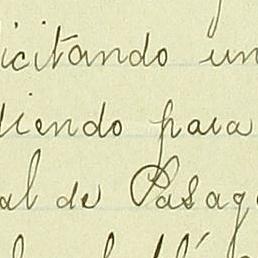 icitando un
diendo para
al de Pasag